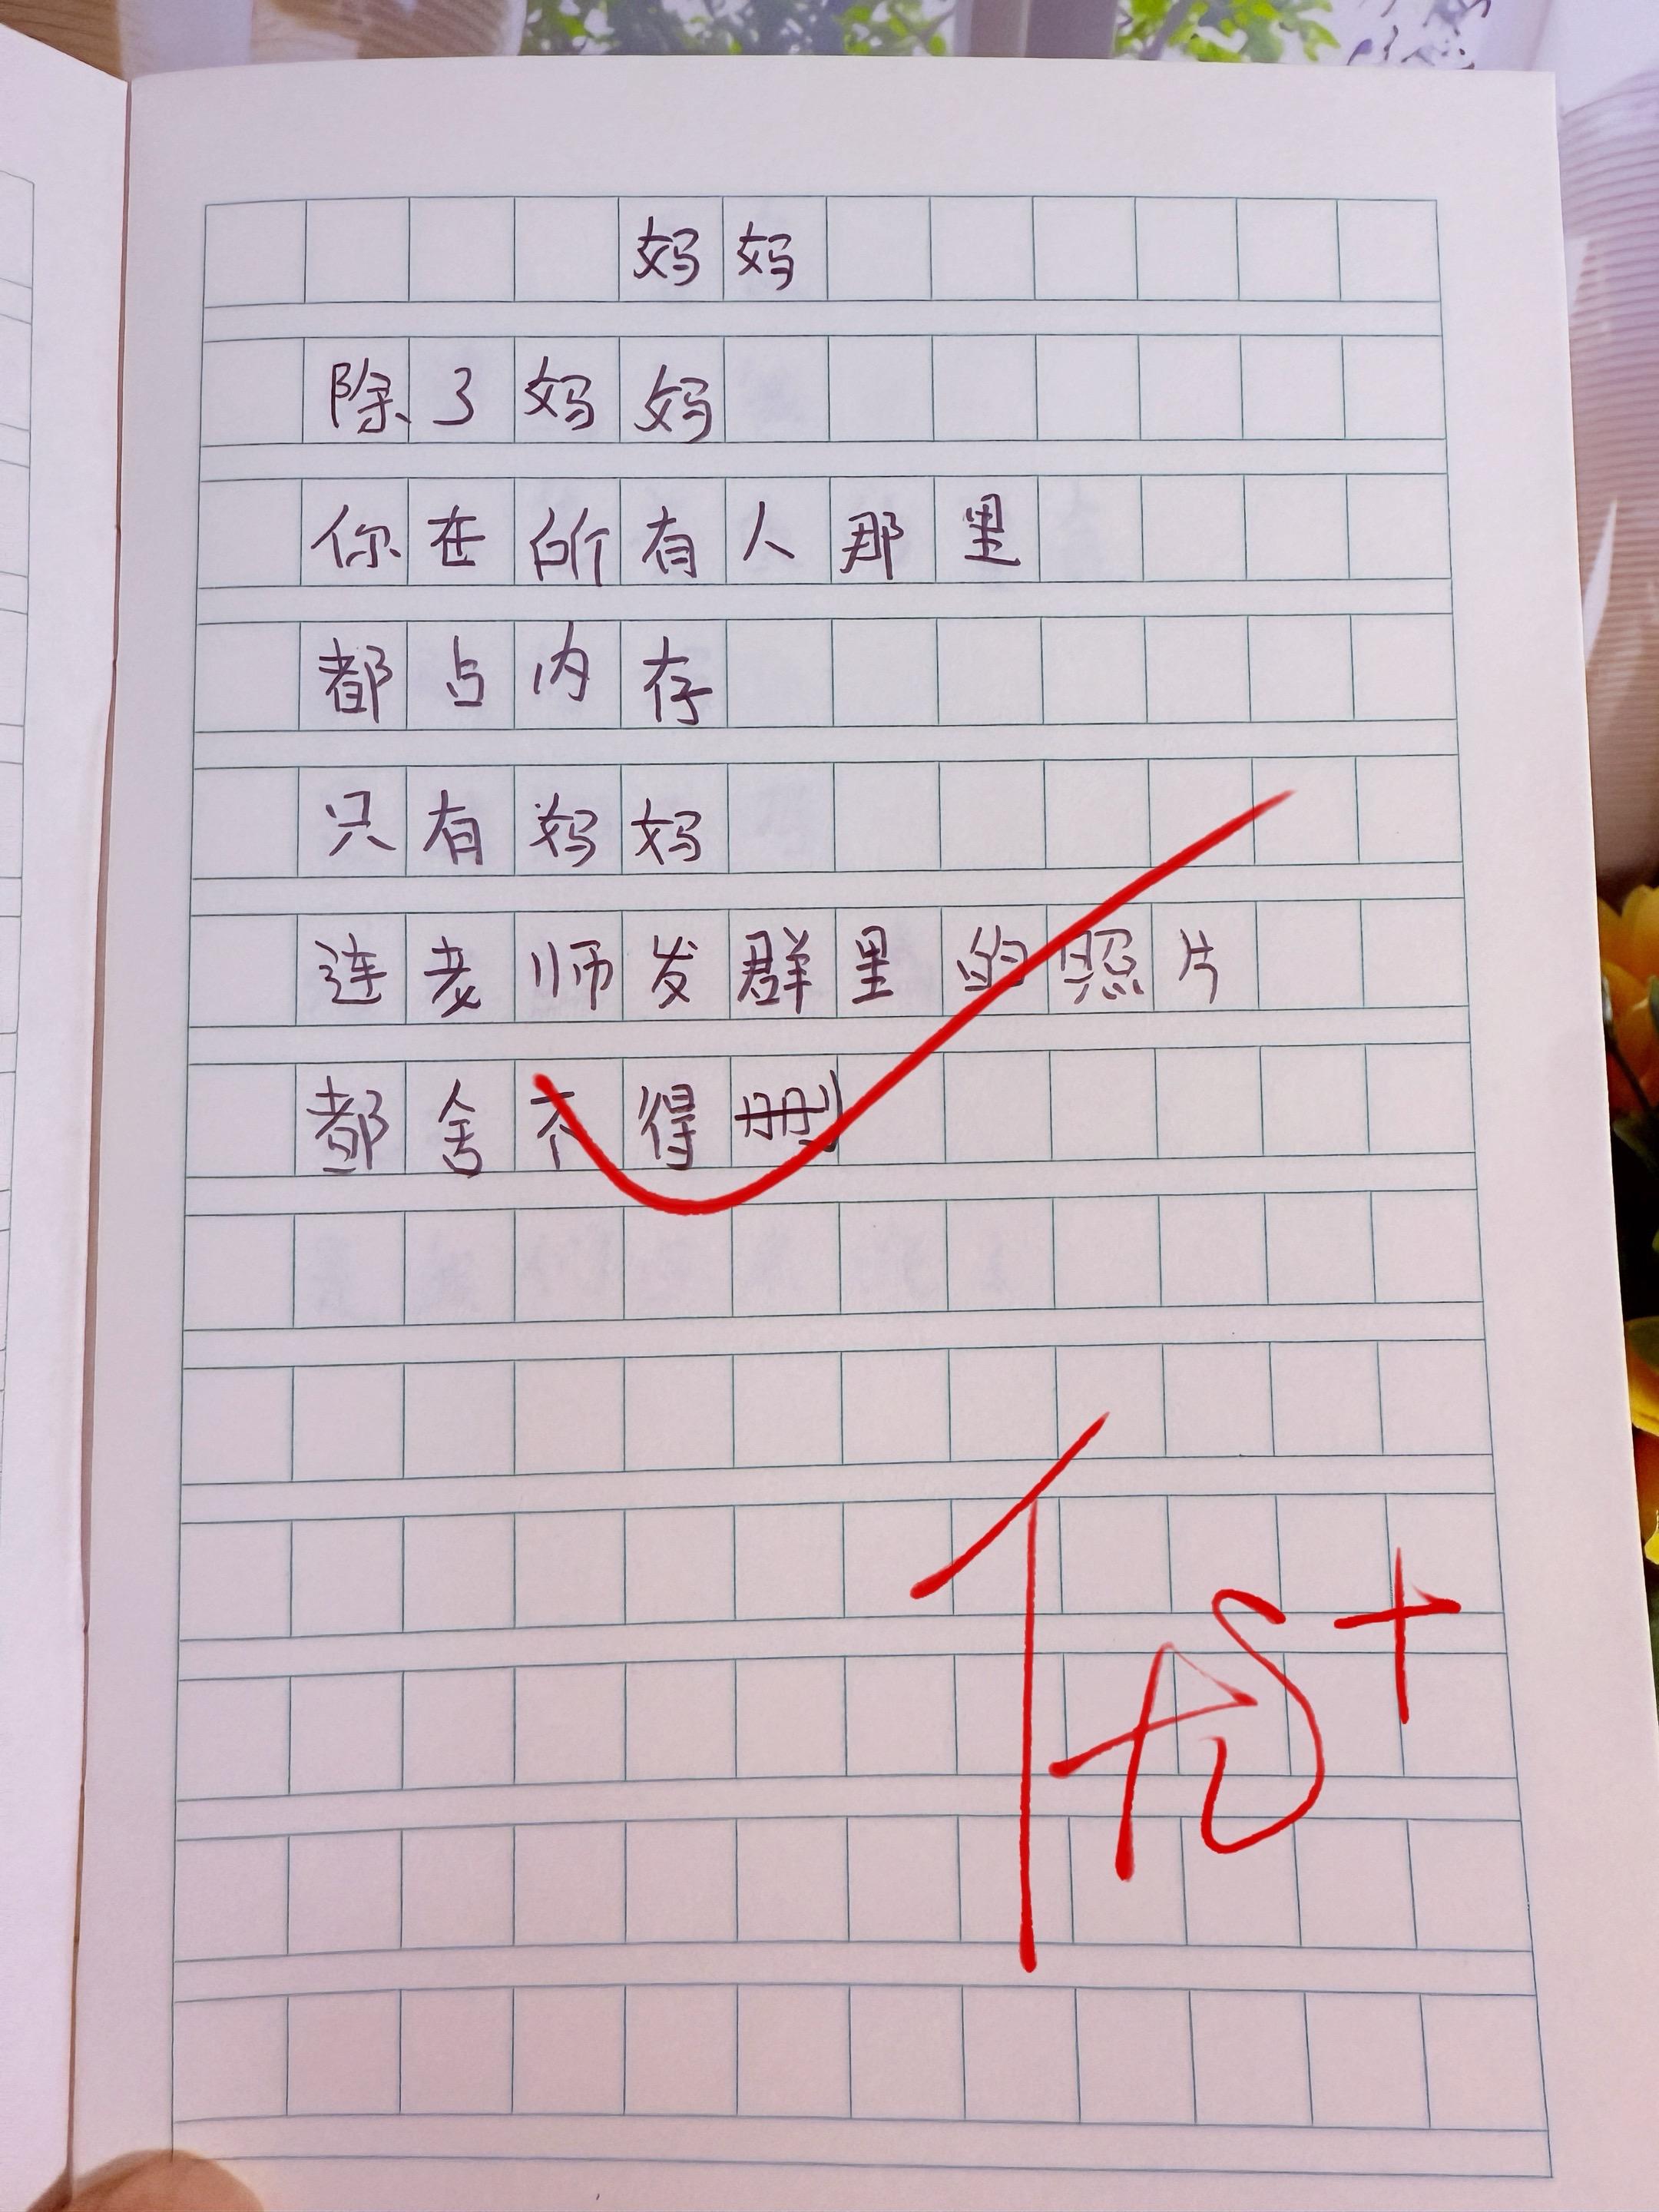 妈妈
除了妈妈
你在所有人那里
都占内存
只有妈妈
连老师发群里的照片
都舍不得删
优+